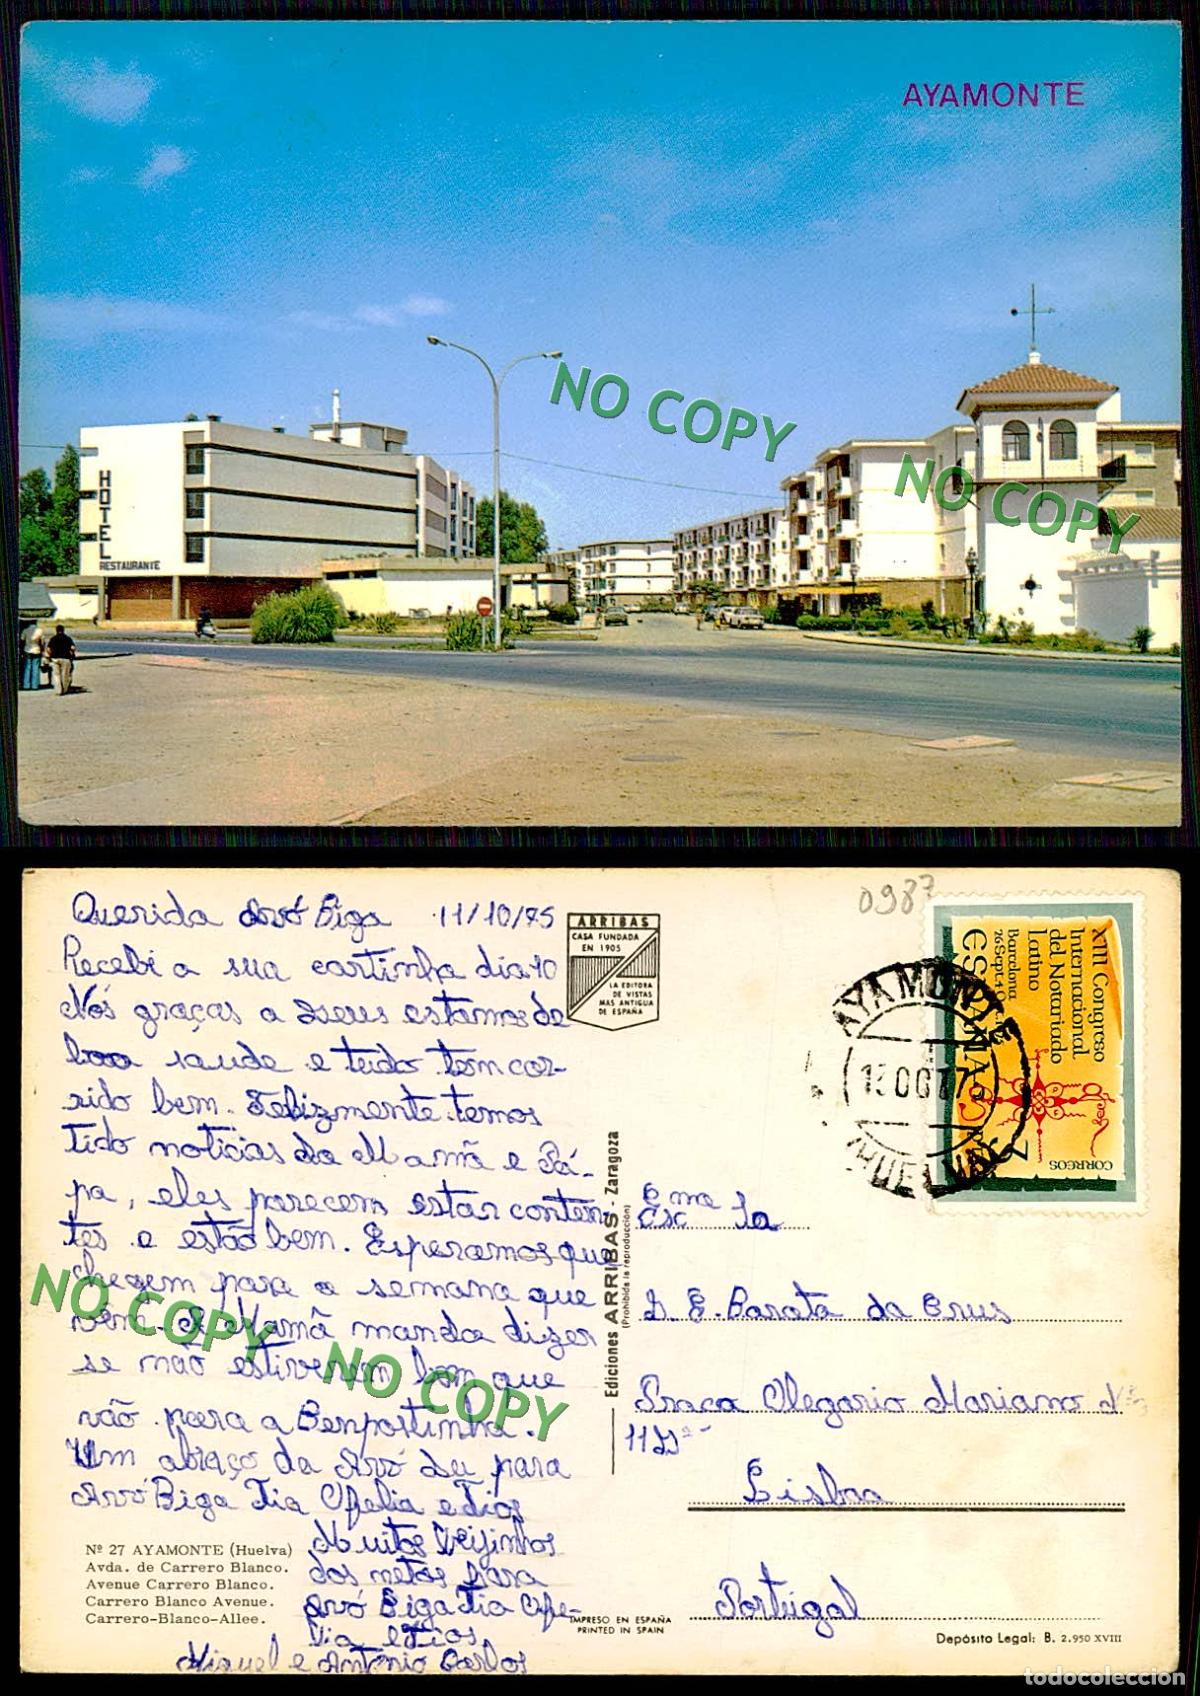 AYAMONTE
HOTEL
RESTAURANTE
NO COPY
NO COPY
Querida Avó Biga 11/10/75
Recebi a sua cartinha dia 10
Nós graças a Deus estamos de
boa saude e tudo tem cor-
rido bem. Felizmente temos
tido noticias da Mamã e Pá-
pa, eles parecem estar conten-
tes e estão bem. Esperamos que
cheguem para a semana que
vem. A Mamã manda dizer
se não estiverem bom que
vão para a Benpostinha.
Um abraço da Avó Lu para
Avó Biga Tia Ofelia e Tios
Muitos Beijinhos
dos netos para
Avó Biga Tia Ofe-
lia e Tios
Miguel e António Carlos
NO COPY
NO COPY
Nº 27 AYAMONTE (Huelva)
Avda. de Carrero Blanco.
Avenue Carrero Blanco.
Carrero Blanco Avenue.
Carrero-Blanco-Allee.
ARRIBAS
CASA FUNDADA
EN 1905
LA EDITORA
DE VISTAS
MAS ANTIGUA
DE ESPAÑA
Ediciones ARRIBAS - Zaragoza
(Prohibida la reproducción)
IMPRESO EN ESPAÑA
PRINTED IN SPAIN
0987
XIII Congreso
Internacional
del Notariado
Latino
Barcelona
26 Sept. 4 Oct.
ESPAÑA
CORREOS
7
AYAMONTE
13 OCT 75
(HUELVA)
Exma
Esc 1a
D. E. Barata da Crus
Praça Olegario Mariano Nº
11 2º
Lisboa
Portugal
Depósito Legal: B. 2.950 XVIII
todocoleccion